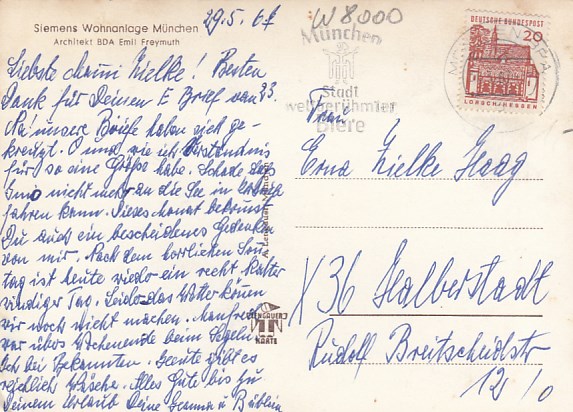 29.5.67
W 8,000
Siemens Wohnanlage München
Architekt BDA Emil Freymuth
München
Stadt
weltberühmter
Biere
DEUTSCHE BUNDESPOST
20
LORSCH/HESSEN
Liebste Mimi Nielke! Besten
Dank für Deinen E Brief von 23.
Na unsere Briefe haben sich ge-
kreuzt. O und wie ich Verständnis
für so eine Größe habe. Schade daß
nicht mehr an die See in Urlaub
fahren kann. Diesen Monat bekommst
Du auch ein bescheidenes Gedenken
von mir. Nach dem herrlichen Sonn
tag ist heute wieder ein recht kalter
windiger Tag. Leider das Wetter können
wir noch nicht machen. Manfred
war übers Wochenende beim Segeln,
ich bei Bekannten. Heute gibt es
reichlich Wäsche. Alles Gute bis zu
Deinem Urlaub Deine
Frau
Erna Nielke Haag
X 36 Halberstadt
Rudolf Breitscheidstr
12/0
LENGAUER
KARTE